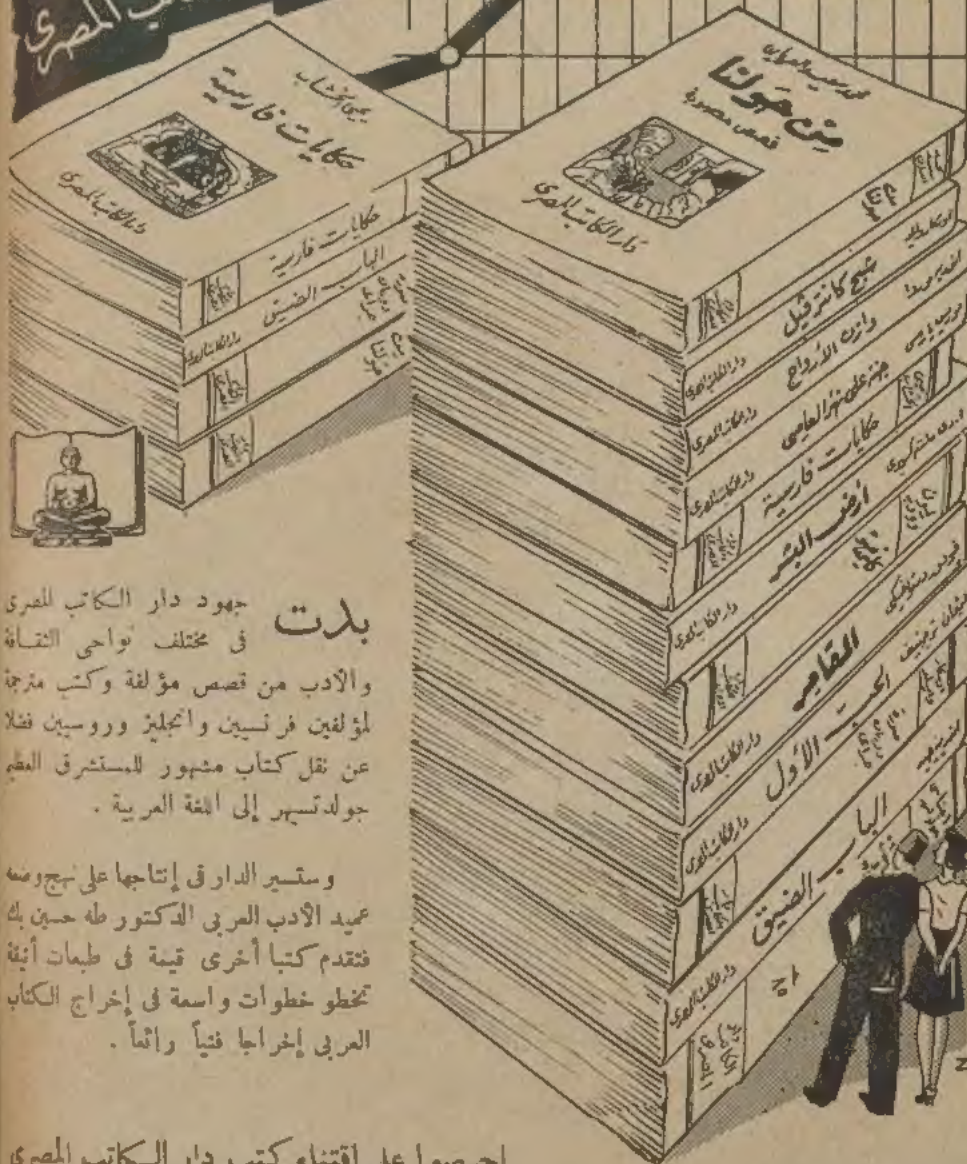 المصرى
يحيى الخشاب
حكايات فارسية
دار الكاتب المصرى
حكايات فارسية
الباب الضيق
دار الكاتب المصرى
محمد سعيد العريان
من حولنا
قصص مصرية
دار الكاتب المصرى
شبح كانترفيل
دار الكاتب المصرى
وازن الأرواح
دار الكاتب المصرى
جنة على نهر العاصى
دار الكاتب المصرى
حكايات فارسية
أرض البشر
دار الكاتب المصرى
المقامر
دار الكاتب المصرى
الحب الأول
دار الكاتب المصرى
الباب الضيق
دار الكاتب المصرى
الكاتب
المصرى
بدت جهود دار الكاتب المصرى
فى مختلف نواحى الثقافة
والأدب من قصص مؤلفة وكتب مترجمة
لمؤلفين فرنسيين وانجليز وروسيين فضلا
عن نقل كتاب مشهور للمستشرق العظيم
جولدتسيهر إلى اللغة العربية .
وستسير الدار فى إنتاجها على نهج وضعه
عميد الأدب العربى الدكتور طه حسين بك
فتقدم كتبا أخرى قيمة فى طبعات أنيقة
تخطو خطوات واسعة فى إخراج الكتاب
العربى إخراجا فنياً رائعاً .
احرصوا على اقتناء كتب دار الكاتب المصرى